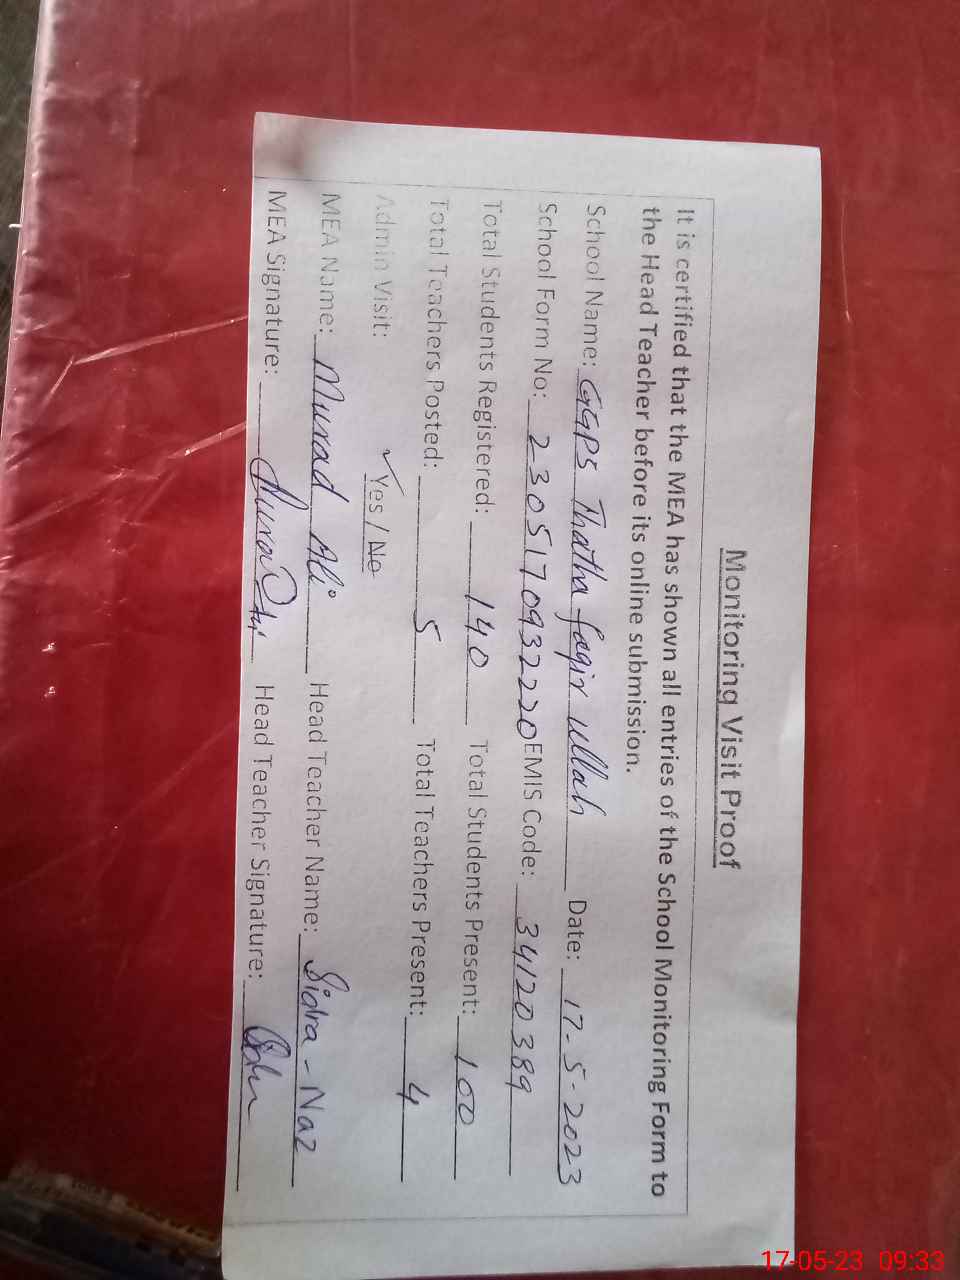 Monitoring Visit Proof
It is certified that the MEA has shown all entries of the School Monitoring Form to
the Head Teacher before its online submission.
School Name: GGPS Thatha faqir ullah Date: 17-5-2023
School Form No: 230517093220 EMIS Code: 34120389
Total Students Registered: 140 Total Students Present: 100
Total Teachers Posted: 5 Total Teachers Present: 4
Admin Visit: ✓ Yes / No
MEA Name: Murad Ali Head Teacher Name: Sidra - Naz
MEA Signature: Head Teacher Signature:
17-05-23 09:33